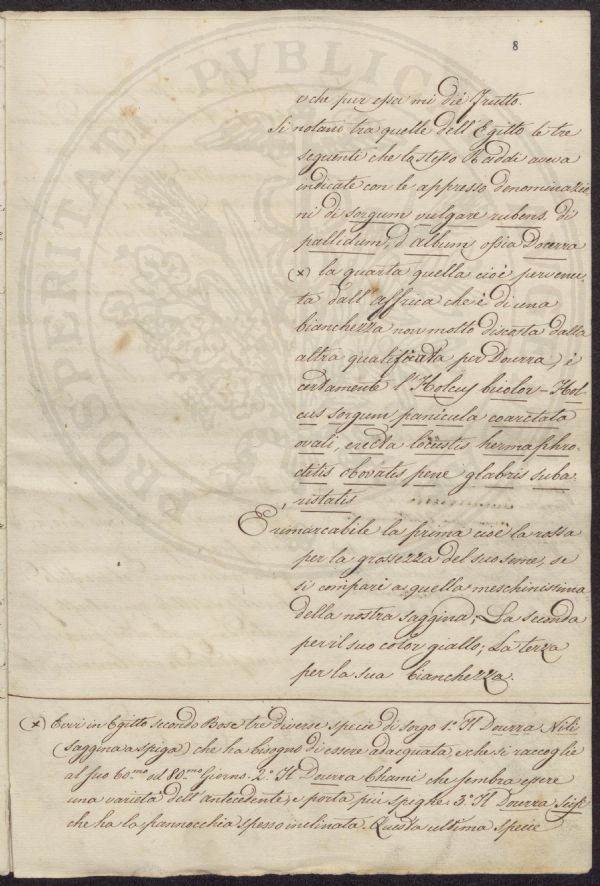 8
e che pur essa mi diè frutto.
Si notano tra quelle dell'Egitto le tre
seguenti che lo stesso Raddi aveva
indicate con le appresso denominazio
ni di sorgum vulgare rubens, di
pallidum, d'album ossia Dourra
(x) la quarta quella cioè pervenu,
ta dall'affrica che è di una
bianchezza non molto discosta dalla
altra qualificata per Dourra, è
certamente l'Holcus bicolor - Hol-
cus sorgum panicula coarctata
ovali, erecta locustis hermaphro-
ditis obovatis pene glabris suba-
ristatis
È rimarcabile la prima cioè la rossa
per la grossezza del suo seme, se
si compari a quella meschinissima
della nostra saggina; La seconda
per il suo color giallo; La terza
per la sua bianchezza.
(x) Evvi in Egitto secondo Bosc tre diverse specie di sorgo 1.° Il Dourra Nili
(saggina a spiga) che ha bisogno di essere adacquata, e che si raccoglie
al suo 60.mo ad 80.mo giorno. 2.° Il Dourra Chami che sembra essere
una varietà dell'antecedente, e porta più spighe. 3.° Il Dourra
che ha la pannocchia spesso inclinata. Questa ultima specie
PROSPERITATI PUBLICAE